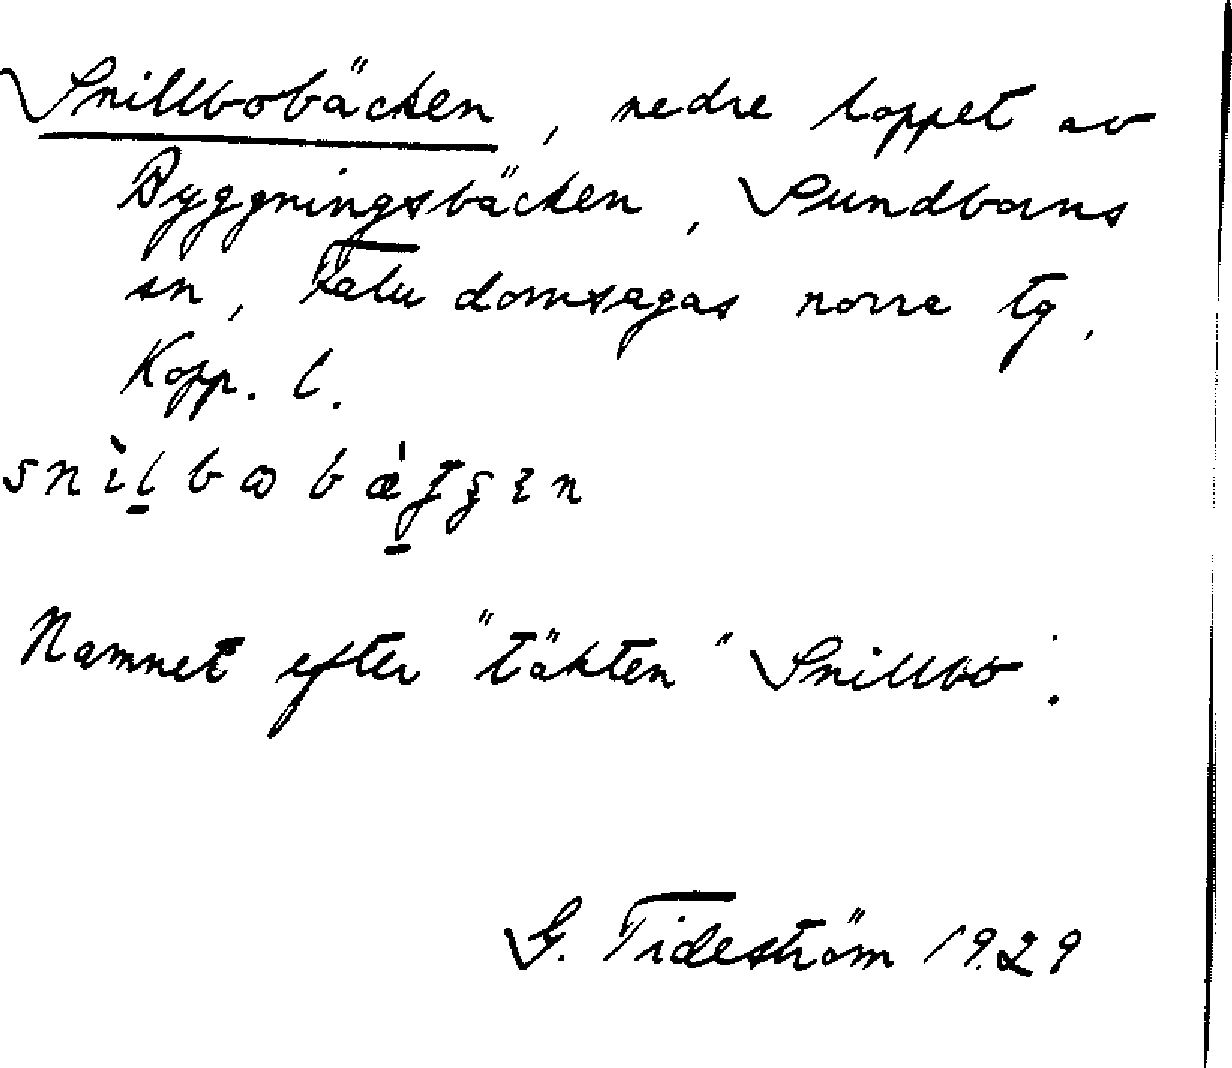 Snillbobäcken, nedre loppet av
Byggningsbäcken, Sundborns
sn, Falu domsagas norra tg,
Kopp. l.
Namnet efter "täkten" Snillbo.
G. Tideström 1929